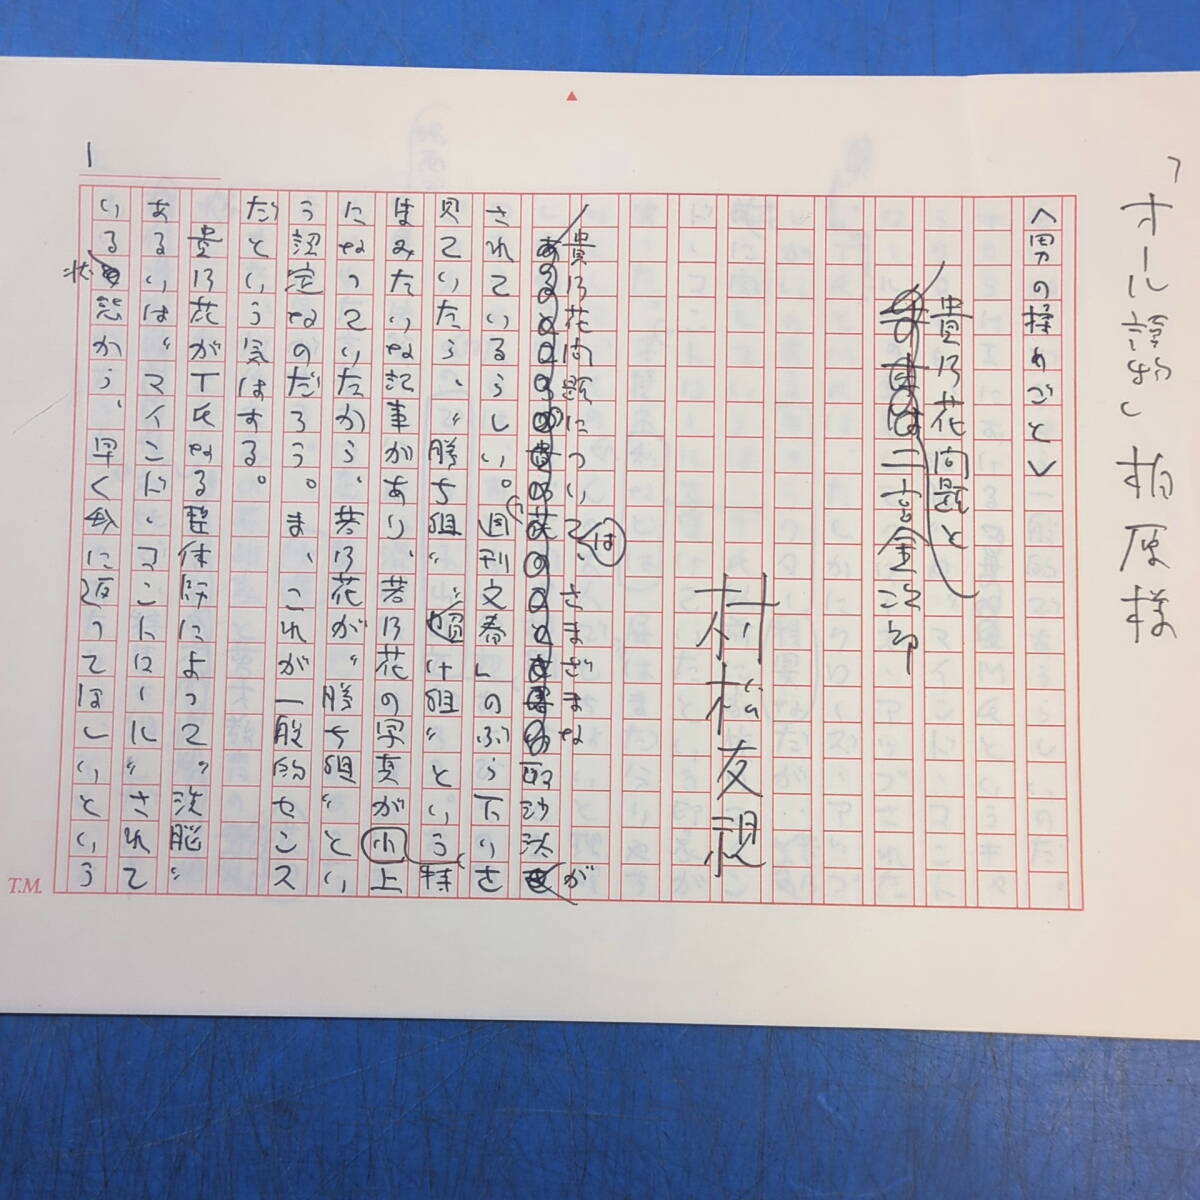 オール讀物 柏原様
1
〈男の揉めごと〉
貴乃花問題と
二宮金次郎
村松友視
貴乃花問題については、さまざまな取沙汰が
されているらしい。週刊文春のぶら下りさ
見ていたら、〝勝ち組〟〝負け組〟という特
集みたいな記事があり、若乃花の写真が上
になっていたから、若乃花が〝勝ち組〟とい
う認定なのだろう。ま、これが一般的センス
だという気はする。
貴乃花がT氏なる整体師によって〝洗脳〟
あるいは〝マインド・コントロール〟されて
いる状態から、早く我に返ってほしいという
T.M.